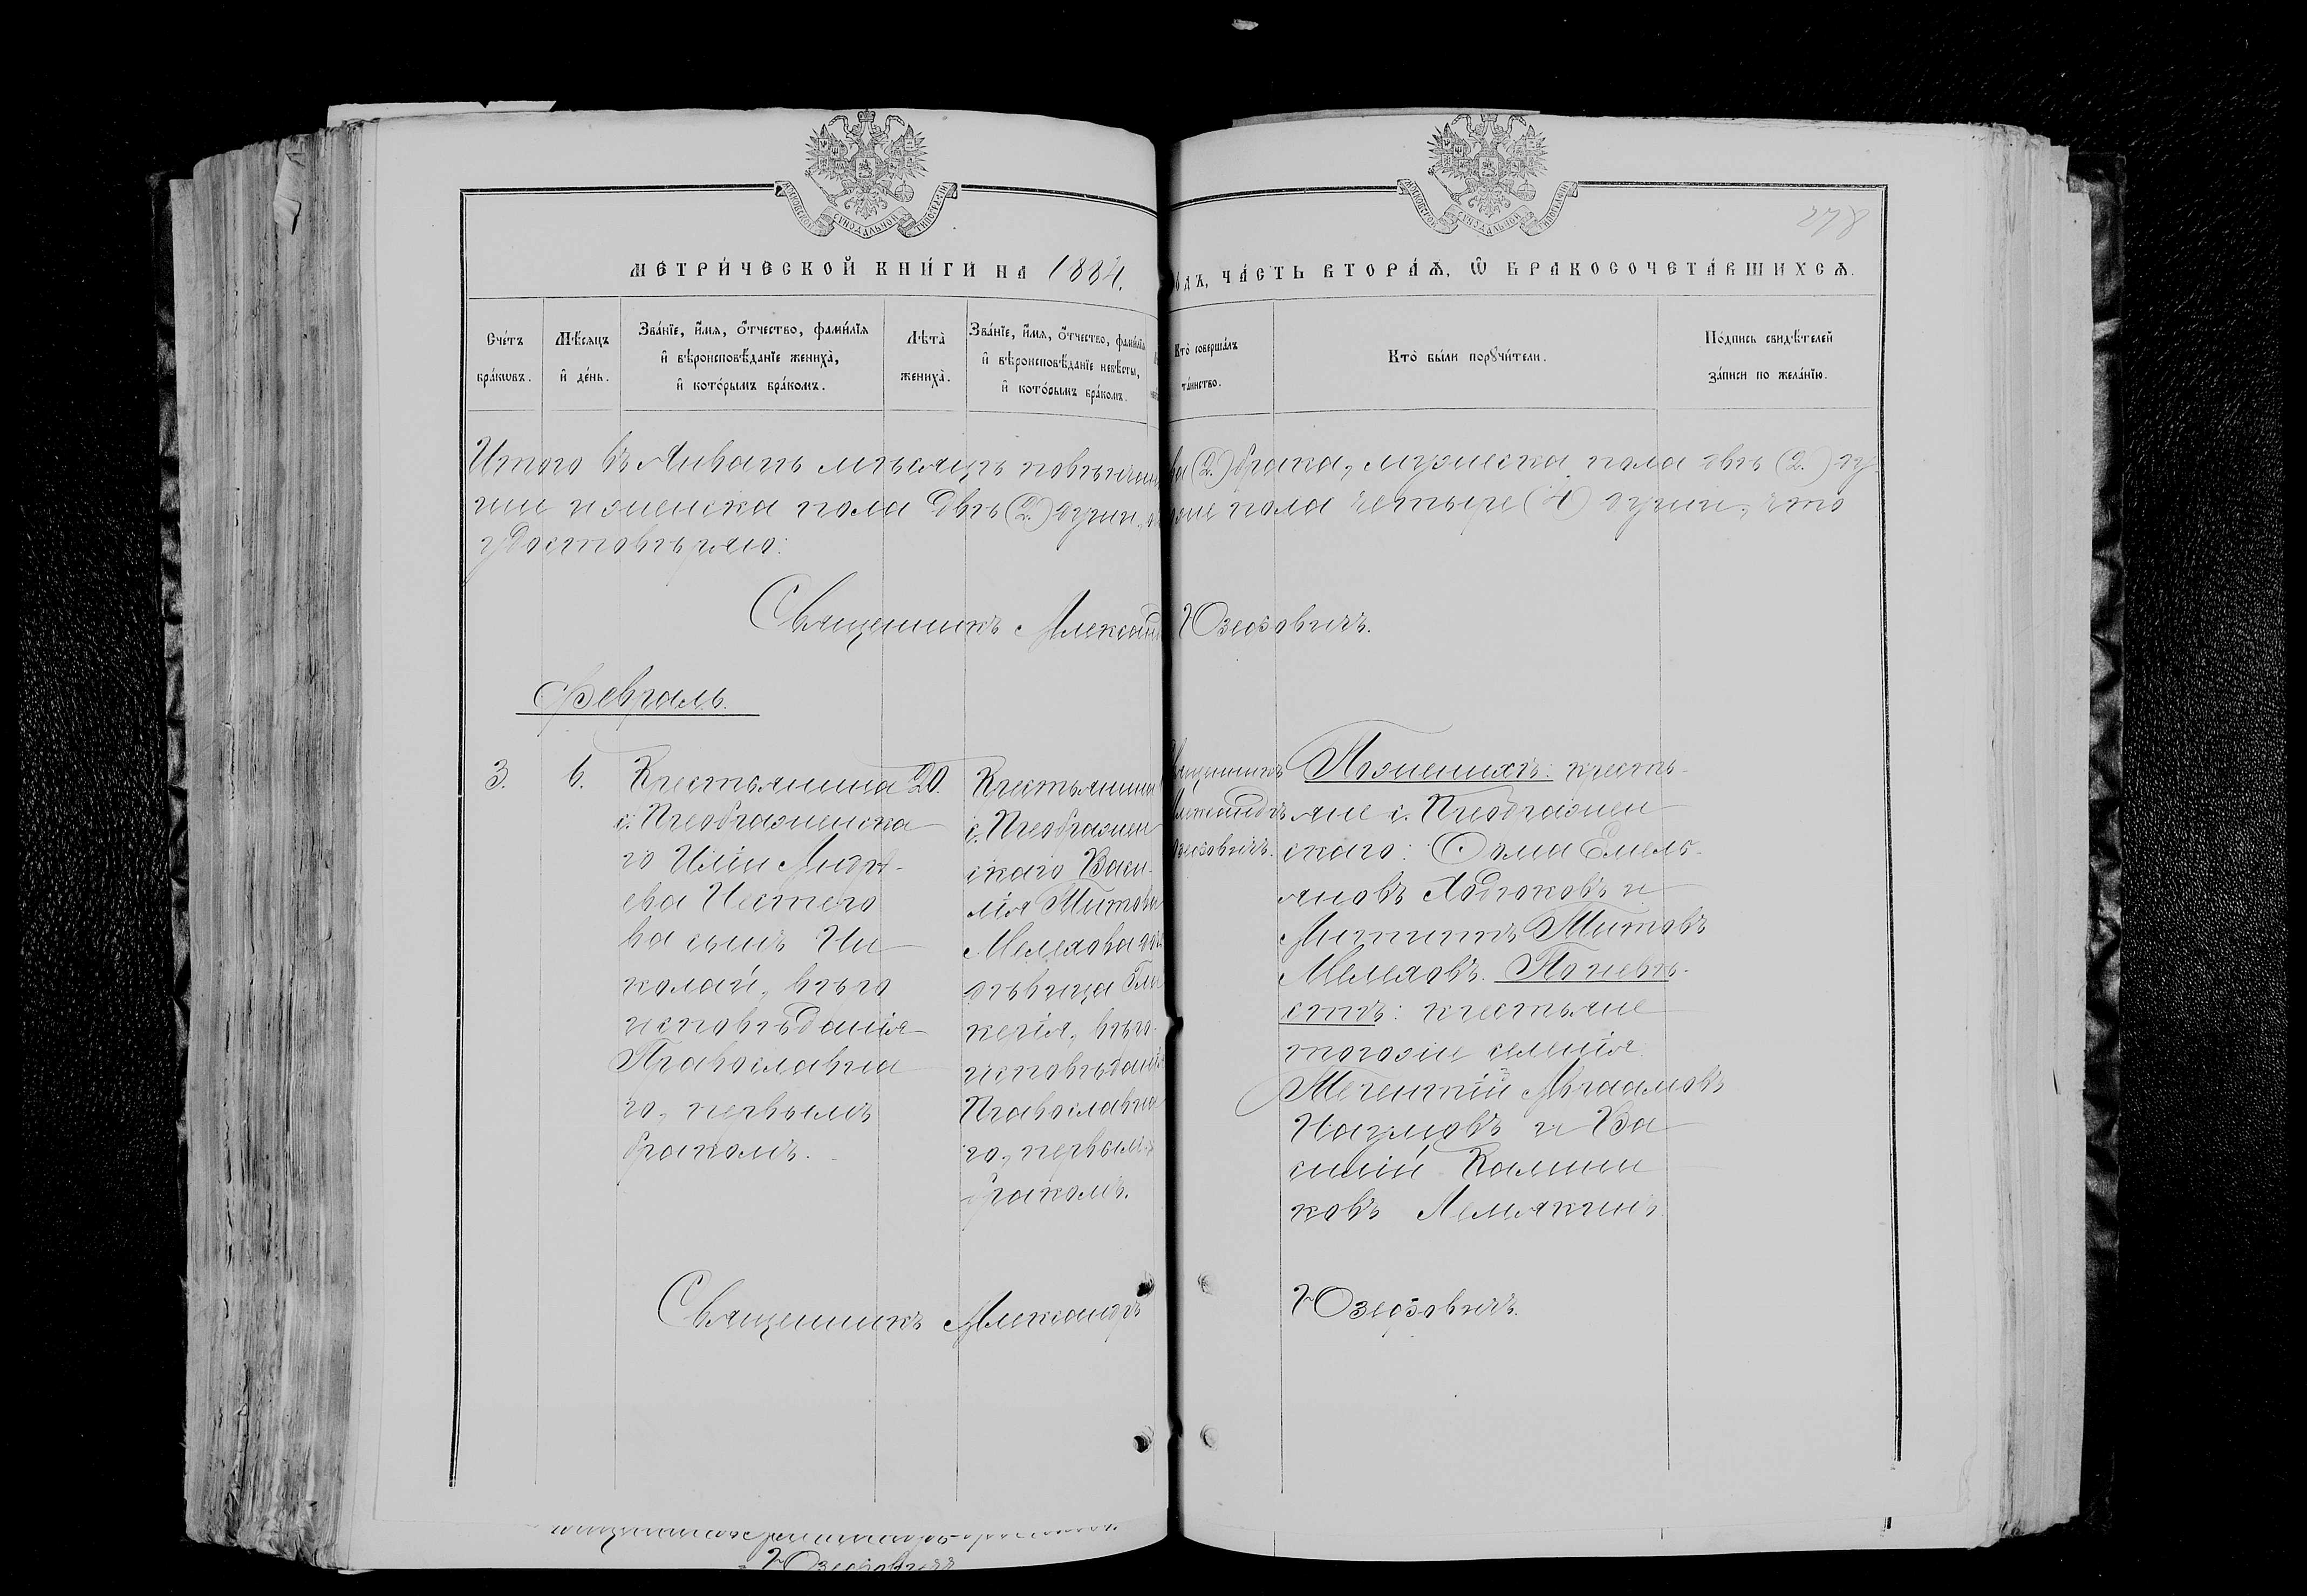 МОСКОВСКОЙ СѴНОДАЛЬНОЙ ТИПОГРАФІИ
МОСКОВСКОЙ СѴНОДАЛЬНОЙ ТИПОГРАФІИ
278
МЕТРИ́ЧЕСКОЙ КНИ́ГИ НА 1884.
ЧА́СТЬ ВТОРА́Ѧ, Ѽ БРАКОСОЧЕТА́ВШИХСѦ.
Сче́тъ бра́кѡвъ.
Мѣ́сѧцъ и҆ де́нь.
Зва́нїе, и҆́мѧ, ѻ҆́тчество, фами́лїѧ и҆ вѣроисповѣ́данїе жениха̀, и҆ кото́рымъ бра́комъ.
Лѣта̀ жениха̀.
Зва́нїе, и҆́мѧ, ѻ҆́тчество, фами́лїѧ и҆ вѣроисповѣ́данїе невѣ́сты, и҆ кото́рымъ бра́комъ.
Кто̀ соверша́лъ та́инство.
Кто̀ бы́ли порꙋчи́тели.
По́дпись свидѣ́телей за́писи по жела́нїю.
Итого въ Январѣ мѣсяцѣ повѣнчан ва (2.) брака, мужеска пола двѣ (2.) ду-
ши и женска пола двѣ (2.) души, о оего пола четыре (4) души, что
удостовѣряю:
Священникъ Александ Юзефовичъ.
Февраль.
3.
6.
Крестьянина
с. Преображенска
го Иліи Андре-
ева Нестеро
ва сынъ Ни
колай, вѣро
исповѣданія
Православна
го, первымъ
бракомъ.
20.
Крестьянина
с. Преображен
скаго Васи-
лія Титова
Мелехова дочь
дѣвица Гли
керія, вѣро-
исповѣданія
Православна
го, первымъ
бракомъ.
вященникъ
лександръ
зефовичъ.
По женихѣ: кресть-
яне с. Преображен
скаго: Ѳома Емель-
яновъ Ходюковъ и
Титовъ
Мелеховъ. По невѣ-
стѣ: крестьяне
тогоже селенія
Терентій Авраамовъ
Наумовъ и Ва
силій Калини
ковъ Лемякинъ.
Священникъ Александръ Юзефовичъ.
Юзефовичъ